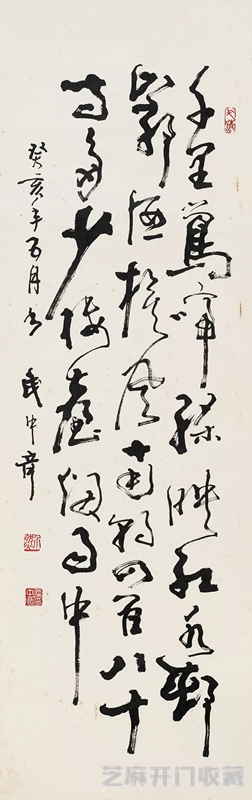 千里鶯啼綠映紅水邨
山郭酒旗風南朝四百八十
寺多少樓臺烟雨中
癸亥年五月書 武中奇
芝麻开门收藏